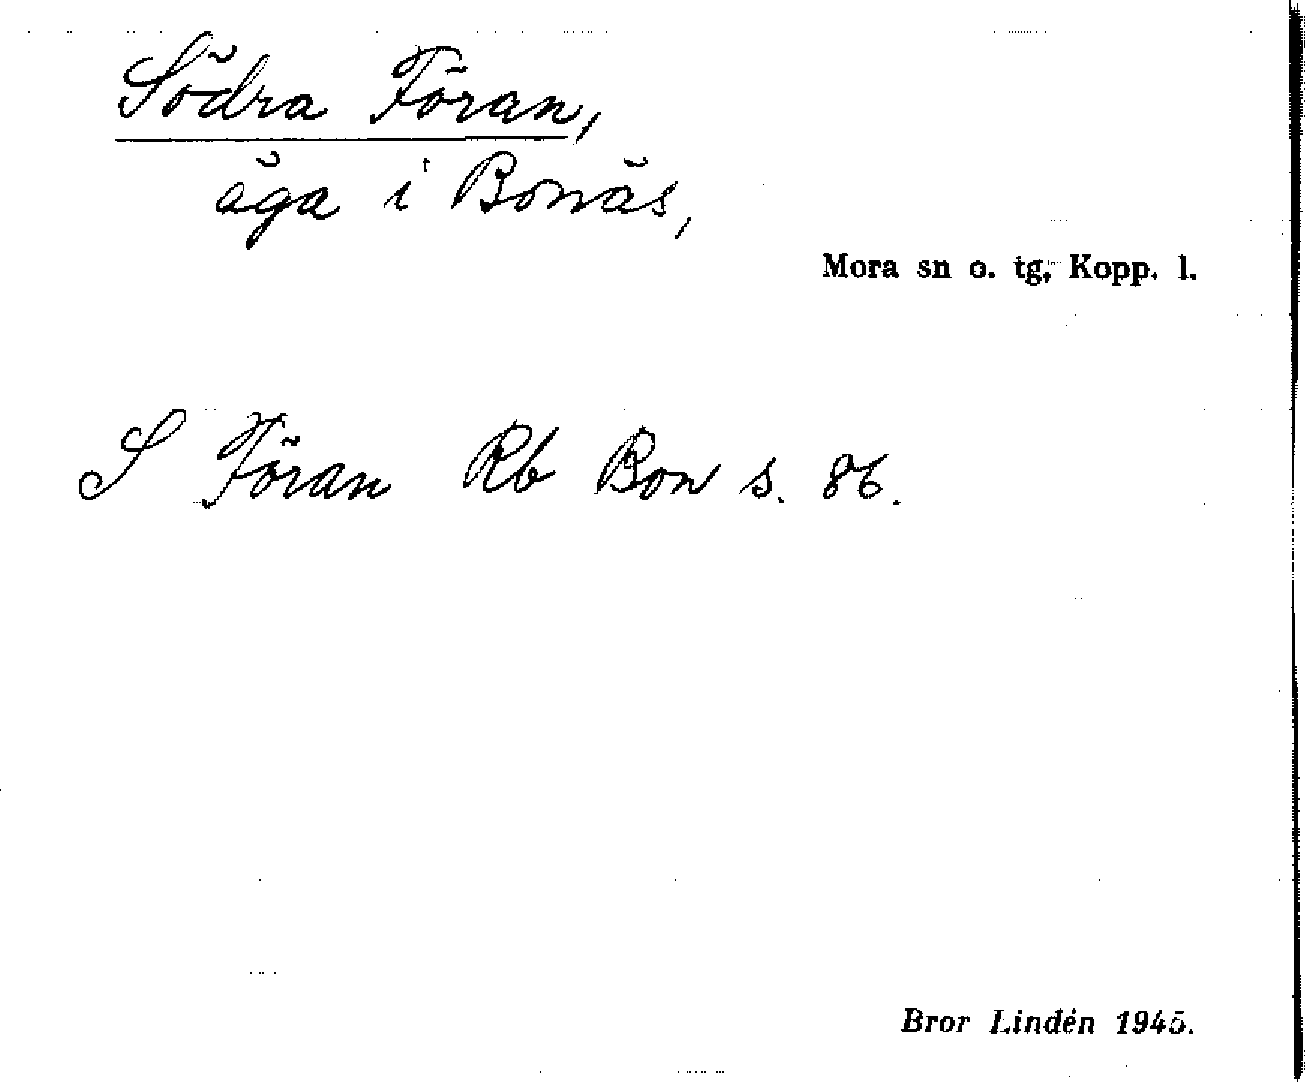 Södra Föran,
äga i Bonäs,
Mora sn o. tg, Kopp. l.
S Föran Rb Bon s. 86.
Bror Lindén 1945.